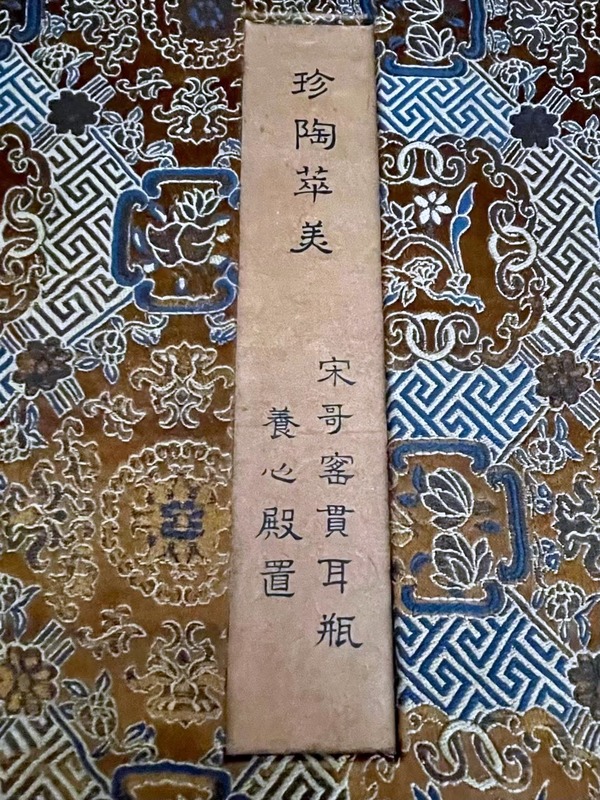 珍陶萃美
宋哥窰貫耳瓶
養心殿置